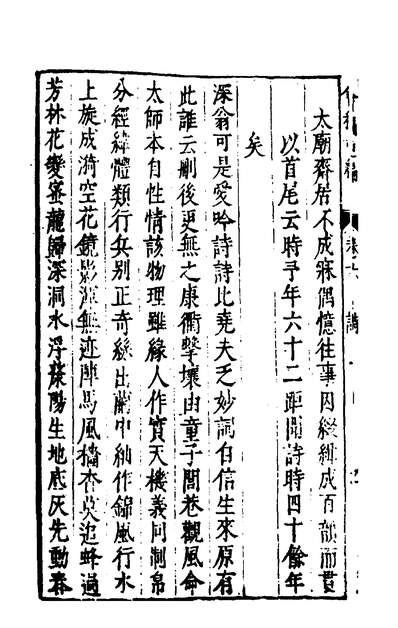 太廟齋居不成寐偶憶往事因綴緝成百韻而貫
以首尾云時予年六十二距聞詩時四十餘年
矣
深翁可是愛吟詩詩比堯夫乏妙詞自信生來原有
此誰云刪後更無之康衢擊壤由童子閭巷觀風命
太師本自性情該物理雖緣人作實天機義同制帛
分經緯體類行兵別正奇絲出繭中納作錦風行水
上旋成漪空花鏡影渾無迹陣馬風檣杳莫追蜂過
芳林花變蜜龍歸深洞水浮 陽生地底灰先動春